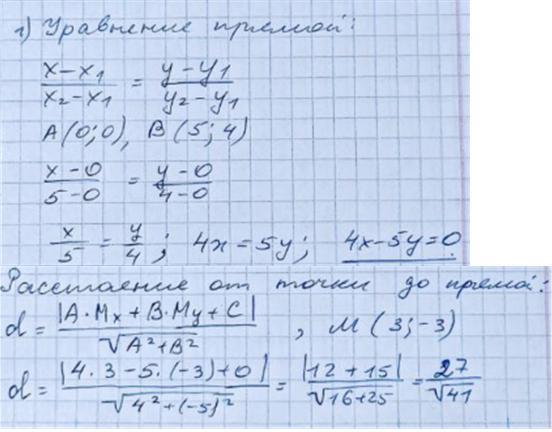 1) Уравнение прямой:
x-x₁/x₂-x₁ = y-y₁/y₂-y₁
A(0;0), B(5;4)
x-0/5-0 = y-0/4-0
x/5 = y/4; 4x=5y; 4x-5y=0.
Расстояние от точки до прямой:
d = |A·Mx+B·My+C|/√A²+B², M(3;-3)
d = |4·3-5·(-3)+0|/√4²+(-5)² = |12+15|/√16+25 = 27/√41